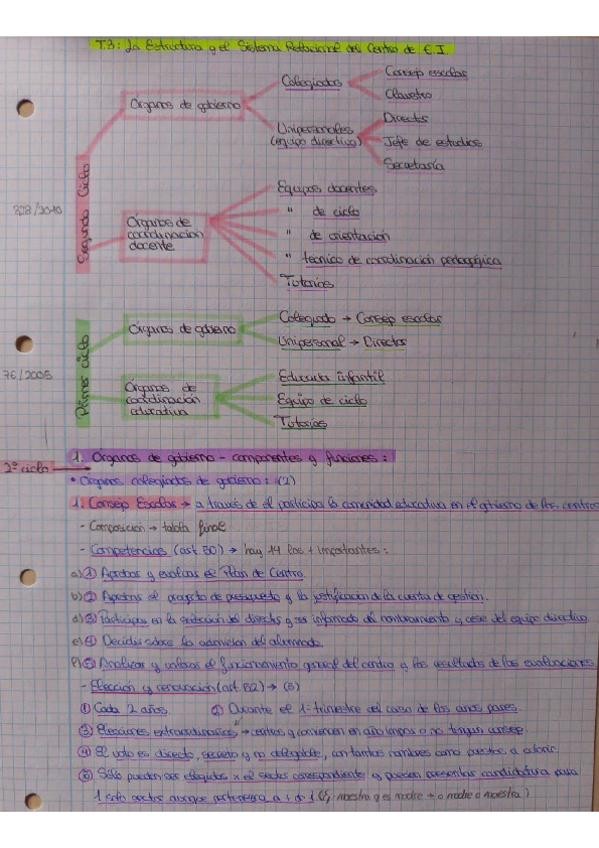 T.3: La Estructura y el Sistema Relacional del Centro de E.I.
Segundo Ciclo
328/2010
Órganos de gobierno
Colegiados
Consejo escolar
Claustro
Unipersonales
(equipo directivo)
Director
Jefe de estudios
Secretaría
Órganos de
coordinación
docente
Equipos docentes
" de ciclo
" de orientación
" técnico de coordinación pedagógica
Tutorías
Primer ciclo
Órganos de gobierno
Colegiado → Consejo escolar
Unipersonal → Director
Órganos de
coordinación
educativa
Educador infantil
Equipo de ciclo
Tutorías
1. Órganos de gobierno - componentes y funciones:
2º ciclo →
• Órganos colegiados de gobierno: (2)
1. Consejo Escolar → a través de él participa la comunidad educativa en el gobierno de los centros
- Composición → tabla final
- Competencias (art. 50) → hay 14 las + importantes:
a) ① Aprobar y evaluar el Plan de Centro.
b) ② Aprobar el proyecto de presupuesto y la justificación de la cuenta de gestión.
③ Participar en la selección del director y ser informado del nombramiento y cese del equipo directivo
e) ④ Decidir sobre la admisión del alumnado.
⑤ Analizar y valorar el funcionamiento general del centro y los resultados de las evaluaciones
- Elección y renovación (art. 52) → (5)
① Cada 2 años. ② Durante el 1er trimestre del curso de los años pares.
③ Elecciones extraordinarias → centros q comiencen en año impar o no tengan consejo.
④ El voto es directo, secreto y no delegable, con tantos nombres como puestos a cubrir.
⑤ Sólo pueden ser elegidos x el sector correspondiente y pueden presentar candidatura para
1 solo sector aunque pertenezca a + de 1. (Ej: maestra q es madre → o madre o maestra)